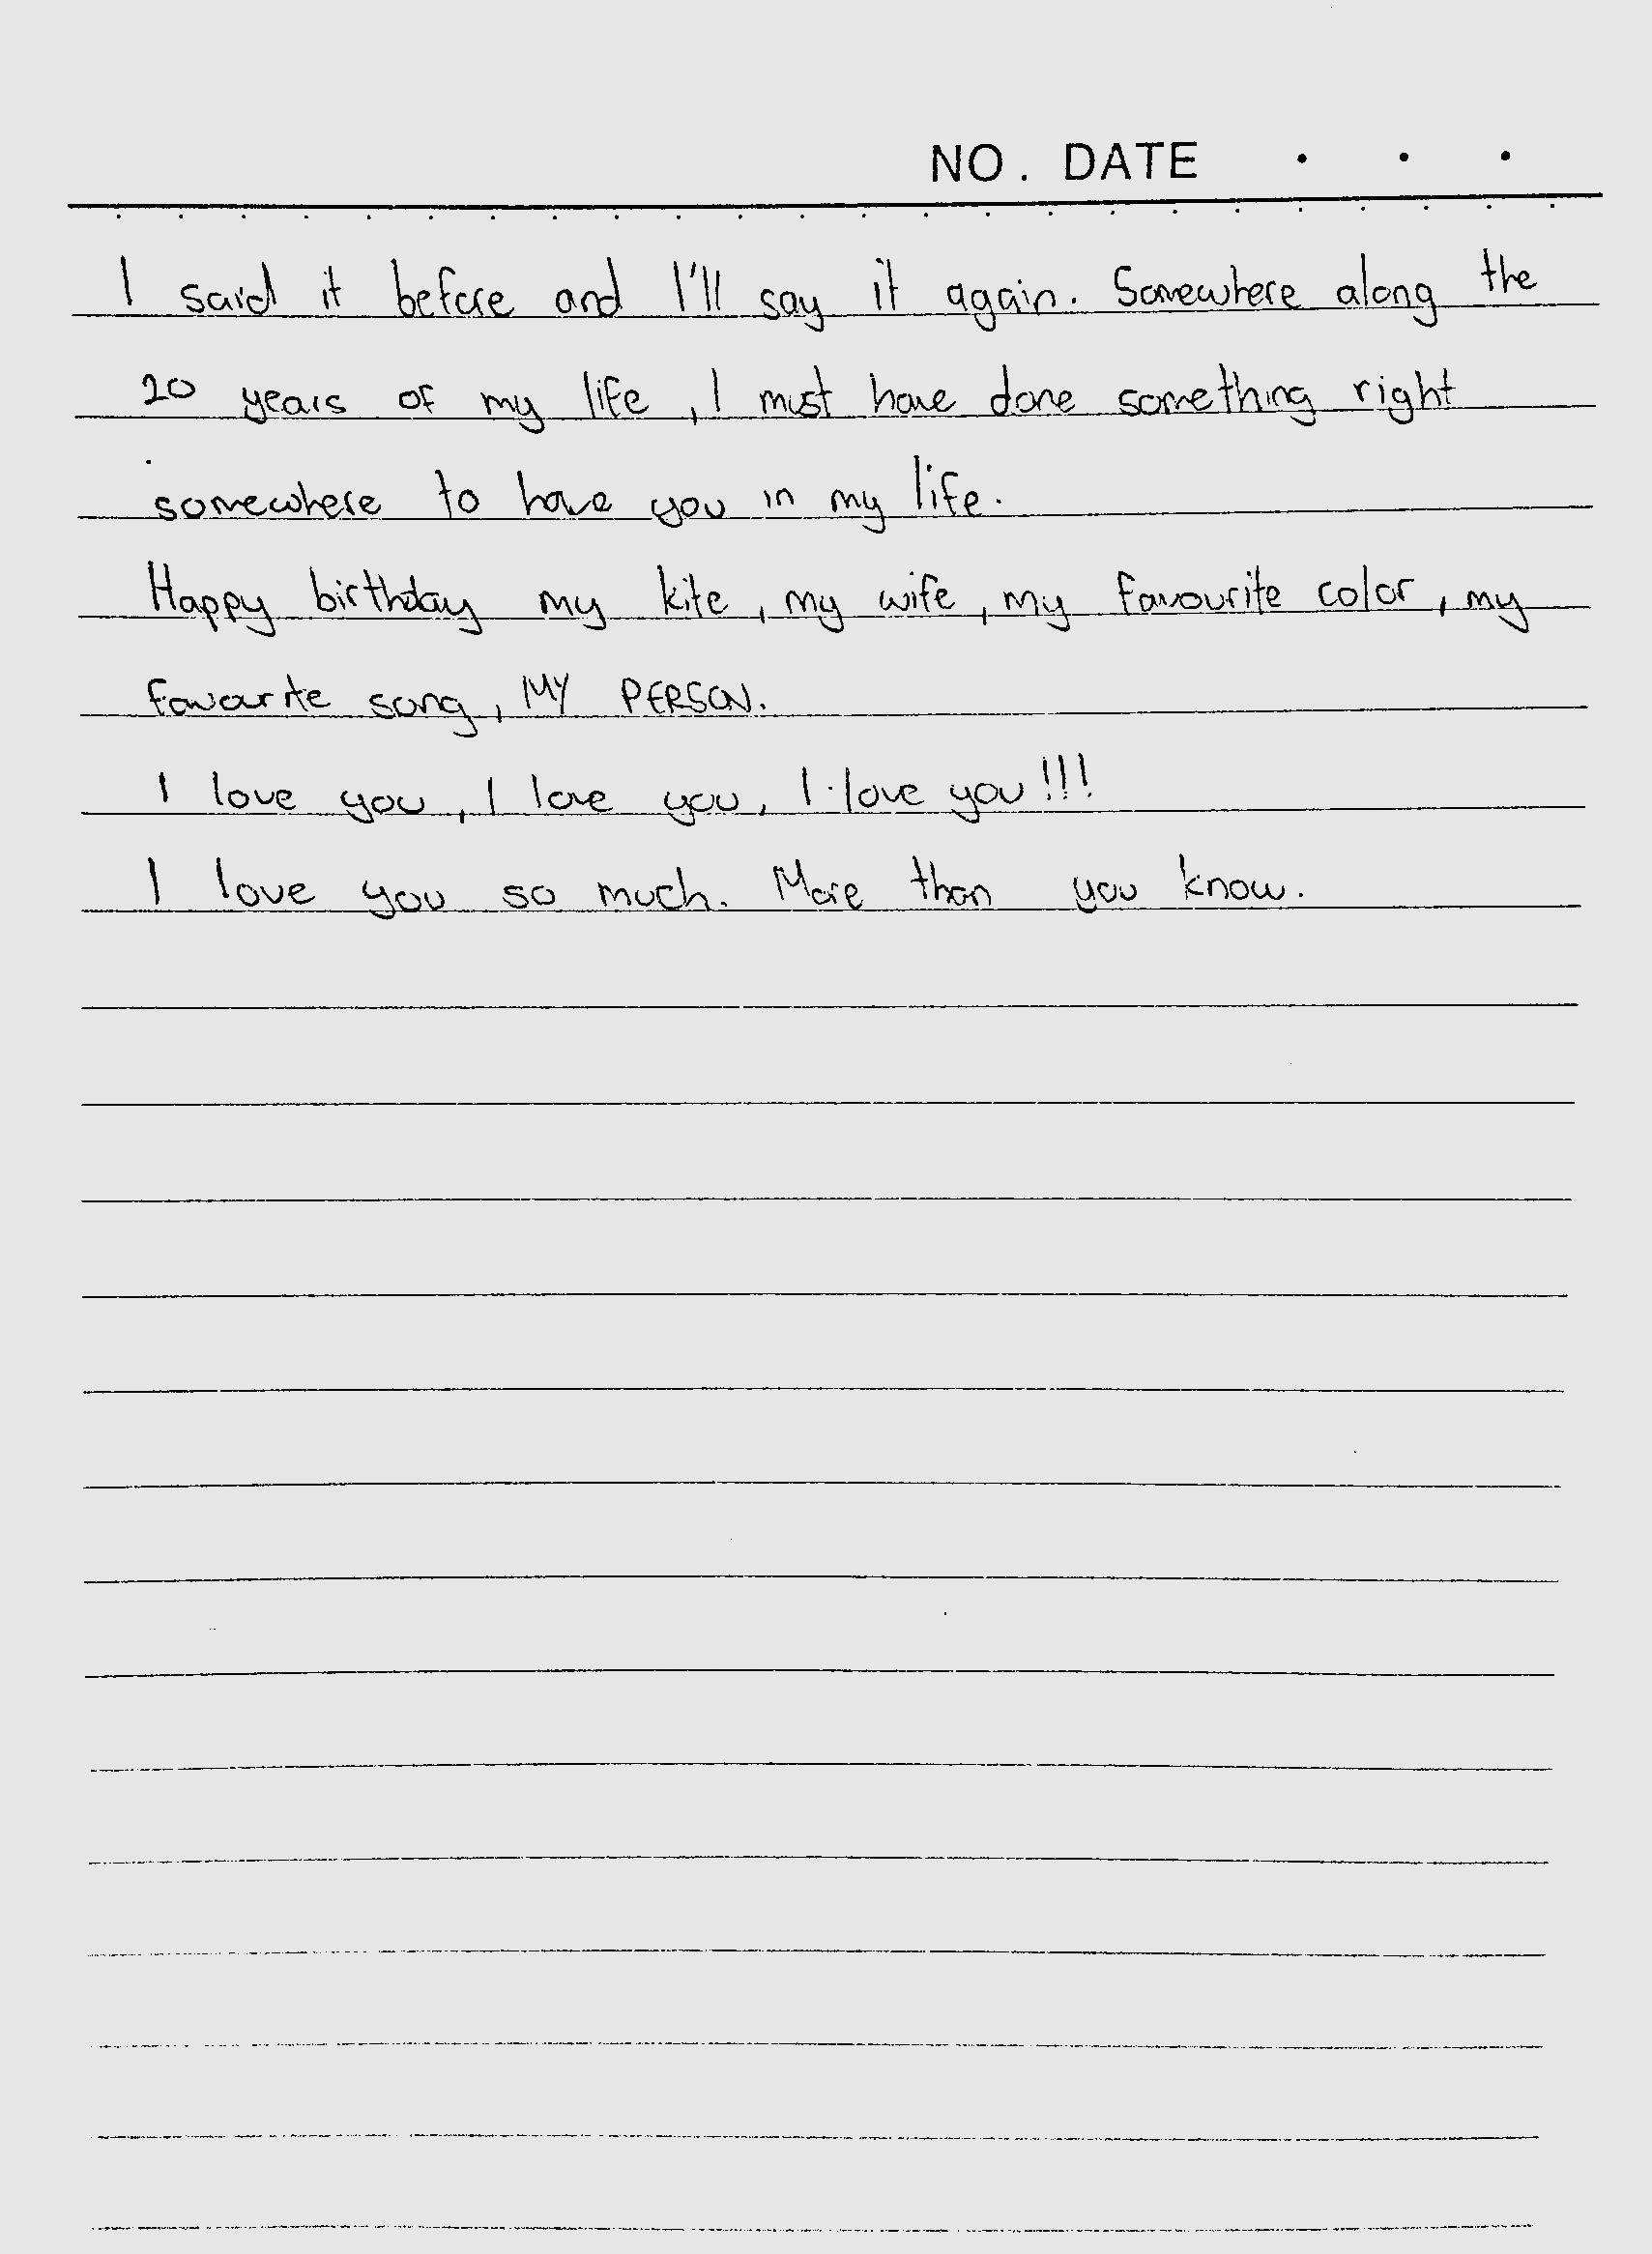 NO. DATE . . .
I said it before and I'll say it again. Somewhere along the
20 years of my life, I must have done something right
somewhere to have you in my life.
Happy birthday my kite, my wife, my favourite color, my
favourite song, MY PERSON.
I love you, I love you, I love you!!!
I love you so much. More than you know.